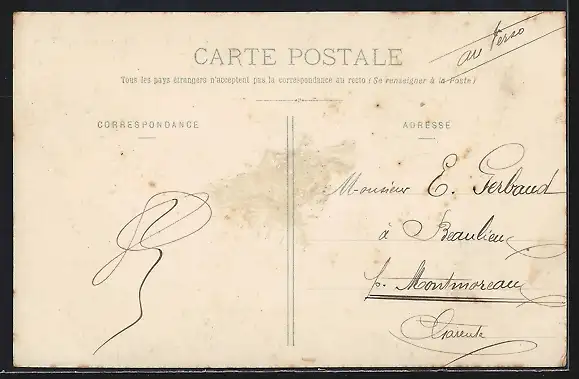 au verso
CARTE POSTALE
Tous les pays étrangers n'acceptent pas la correspondance au recto (Se renseigner à la Poste)
CORRESPONDANCE
ADRESSE
Monsieur E. Gerbaud
à Beaulieu
p. Montmoreau
Charente